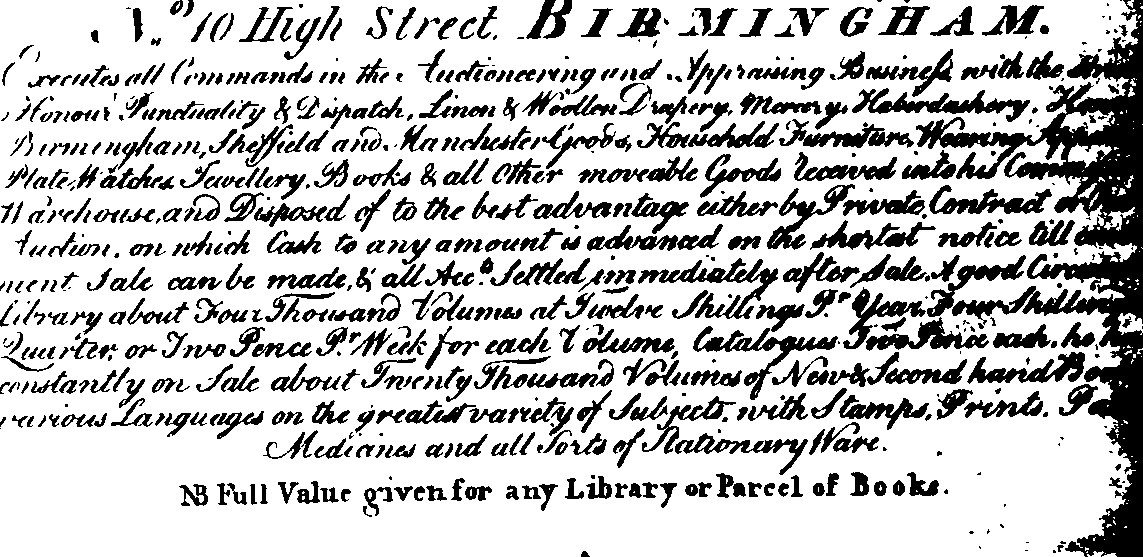 No. 10 High Street, BIRMINGHAM.
Executes all Commands in the Auctioneering and Appraising Business with the
Honour Punctuality & Dispatch, Linen & Woollen Drapery, Mercery, Haberdashery,
Birmingham, Sheffield and Manchester Goods, Household Furniture, Wearing
Plate, Watches, Jewellery, Books & all Other moveable Goods received into his
Warehouse, and Disposed of to the best advantage either by Private Contract or
Auction, on which Cash to any amount is advanced on the shortest notice till
ment Sale can be made, & all Accts. Settled immediately after Sale. A good
Library about Four Thousand Volumes at Twelve Shillings Pr. Year, Four Shillings
Quarter, or Two Pence Pr. Week for each Volume, Catalogues Two Pence each, he has
constantly on Sale about Twenty Thousand Volumes of New & Second hand
various Languages on the greatest variety of Subjects, with Stamps, Prints,
Medicines and all Sorts of Stationary Ware.
NB Full Value given for any Library or Parcel of Books.